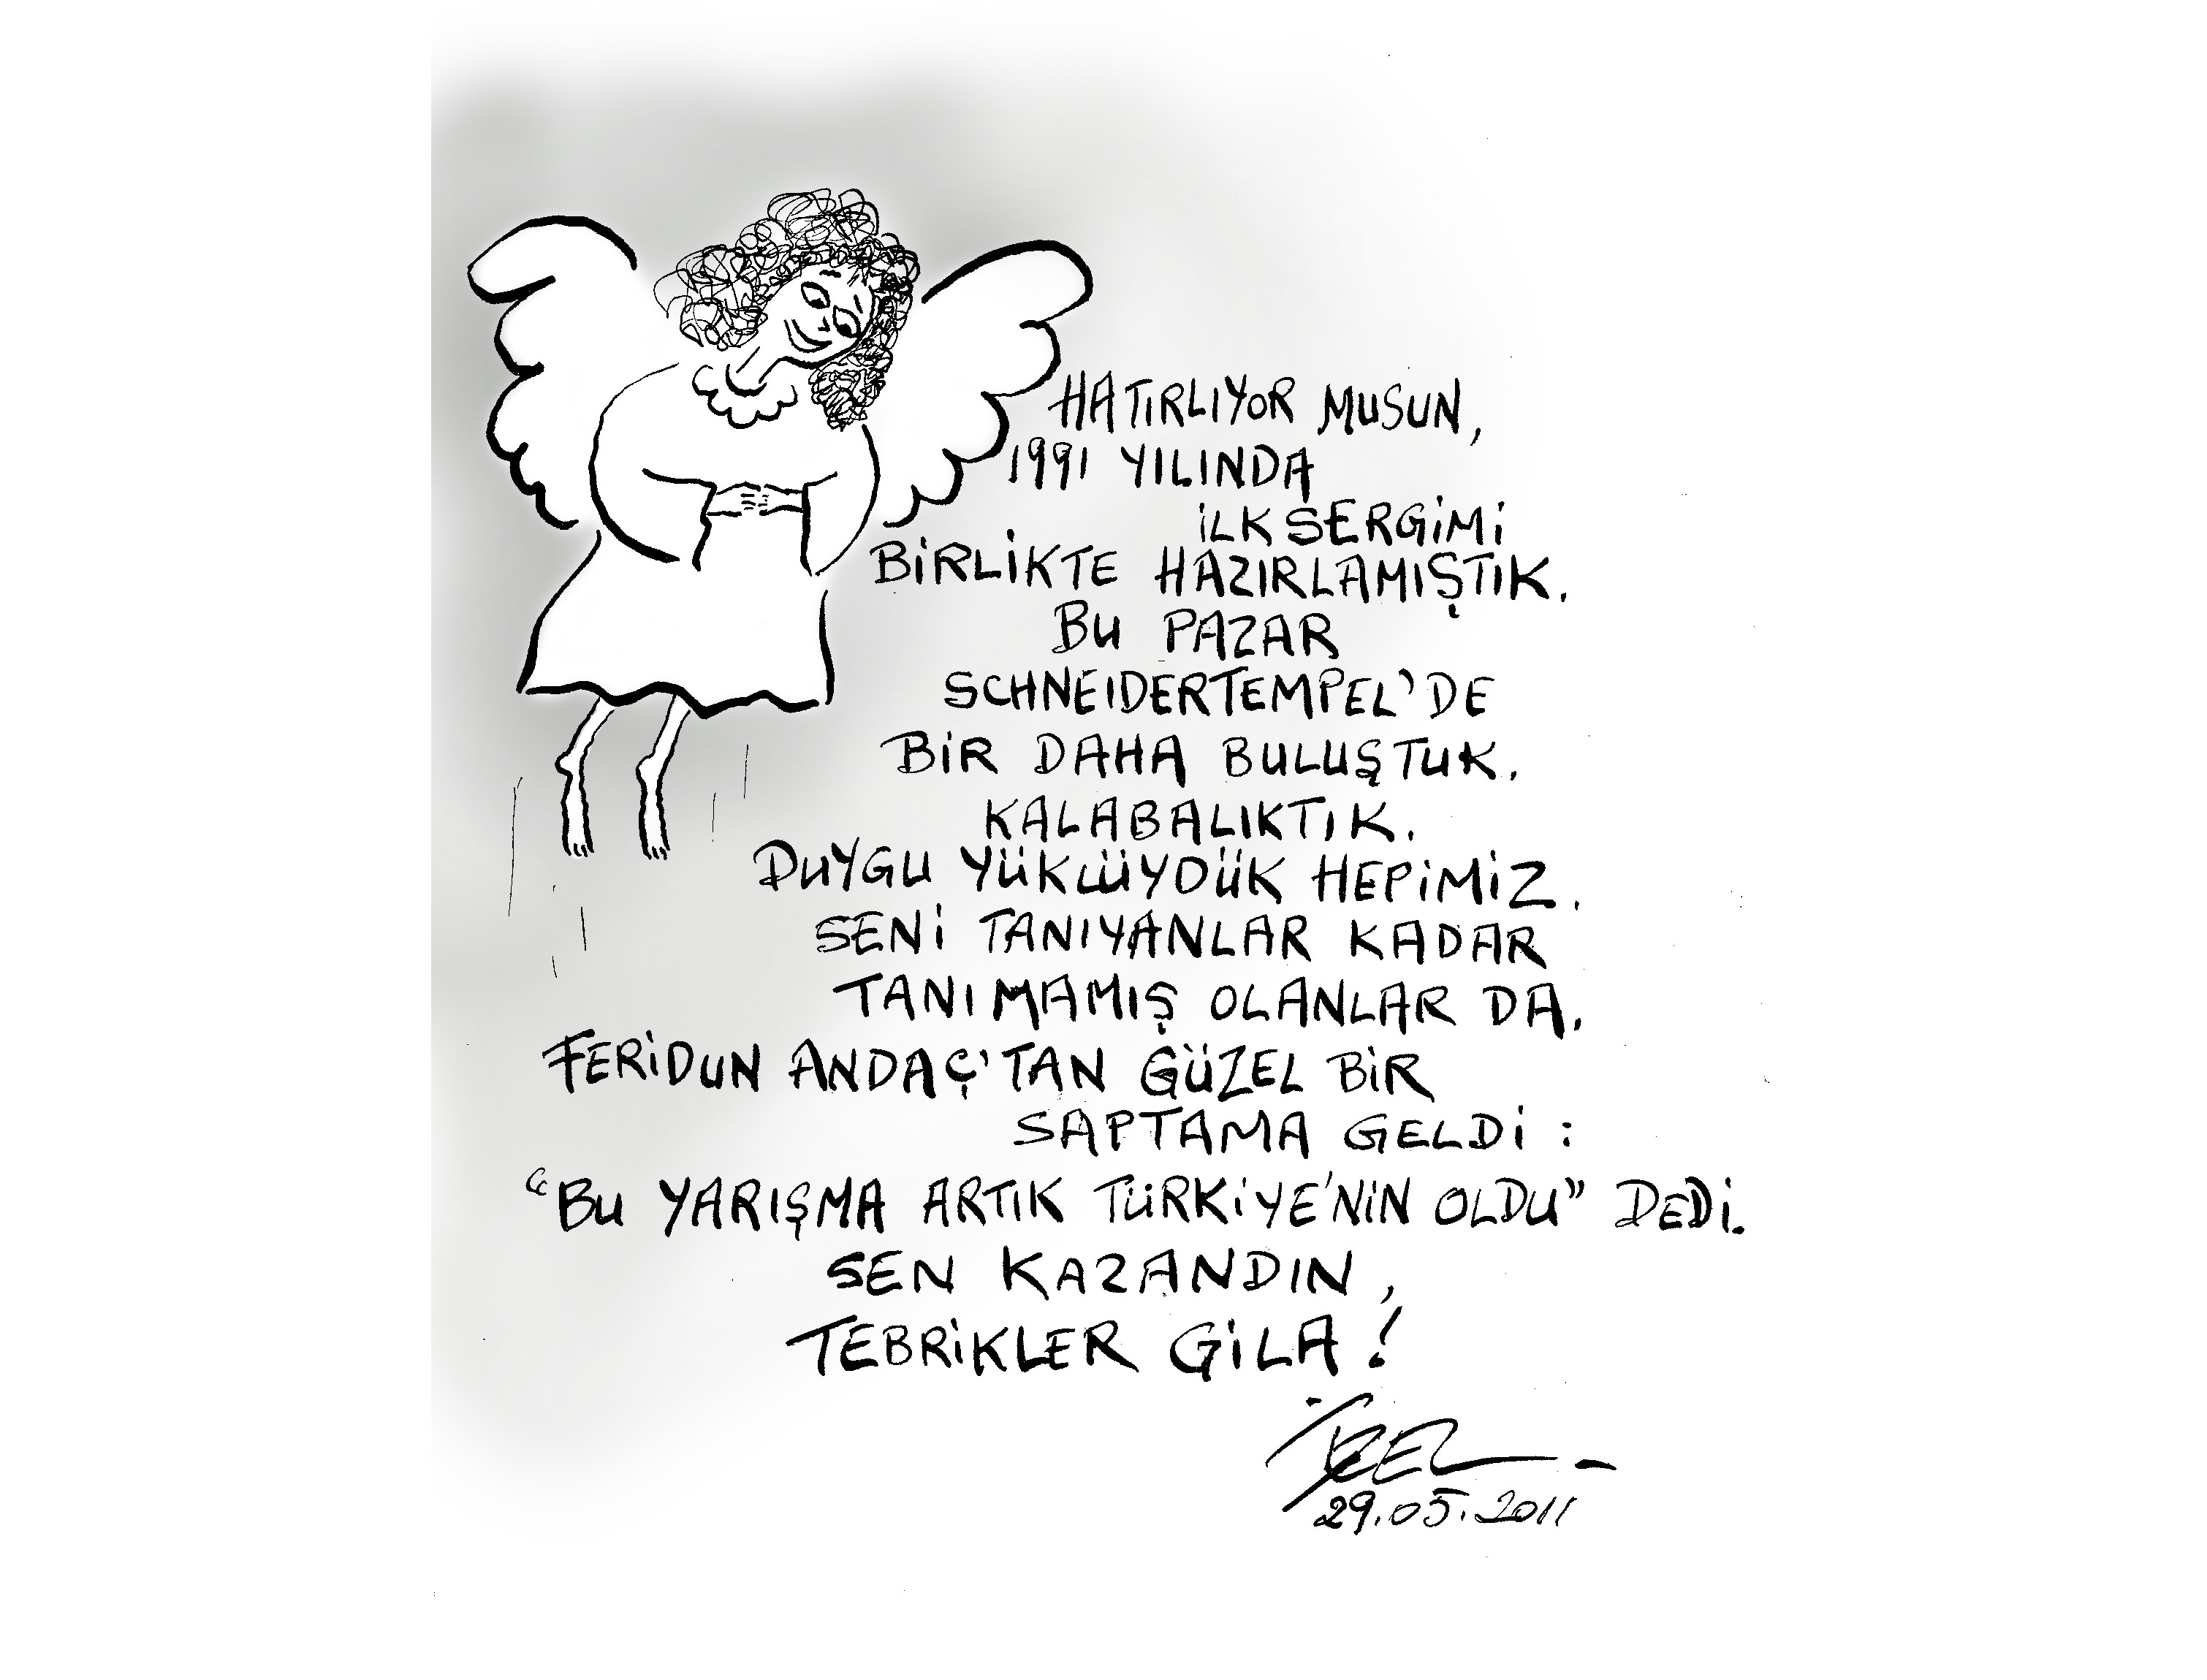 HATIRLIYOR MUSUN,
1991 YILINDA
İLK SERGİMİ
BİRLİKTE HAZIRLAMIŞTIK.
BU PAZAR
SCHNEIDERTEMPEL'DE
BİR DAHA BULUŞTUK.
KALABALIKTIK.
DUYGU YÜKLÜYDÜK HEPİMİZ.
SENİ TANIYANLAR KADAR
TANIMAMIŞ OLANLAR DA.
FERİDUN ANDAÇ'TAN GÜZEL BİR
SAPTAMA GELDİ :
"BU YARIŞMA ARTIK TÜRKİYE'NİN OLDU" DEDİ.
SEN KAZANDIN,
TEBRİKLER GİLA!
İZEL
29.05.2011